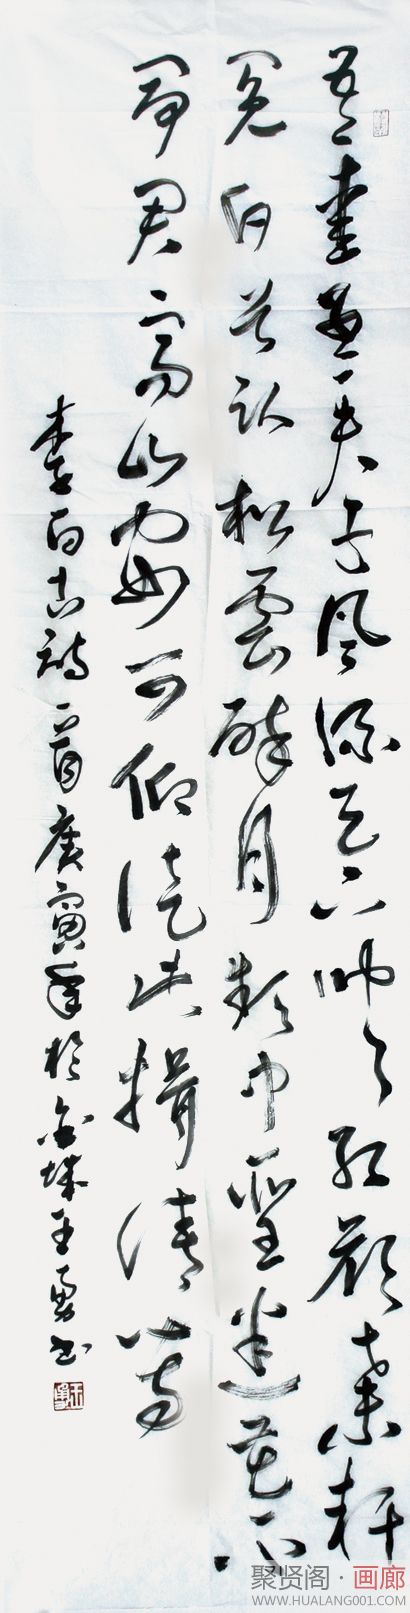 吾愛孟夫子风流天下聞红颜棄軒
冕白首卧松雲醉月频中聖迷花不
事君高山安可仰徒此揖清芬
李白古诗一首庚寅年於金城王勇书
王勇
聚贤阁·画廊
WWW.HUALANG001.COM